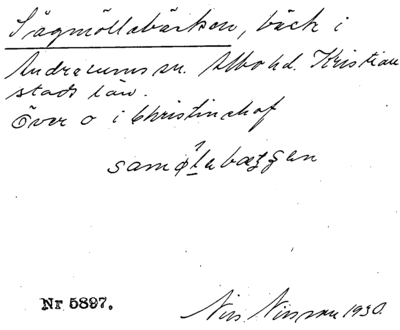 Sågmöllabäcken, bäck i
Andrarums sn. Albo hd. Kristian
stads län.
Över o i Christinehof
Nr 5897.
Nils Nilsson 1930.